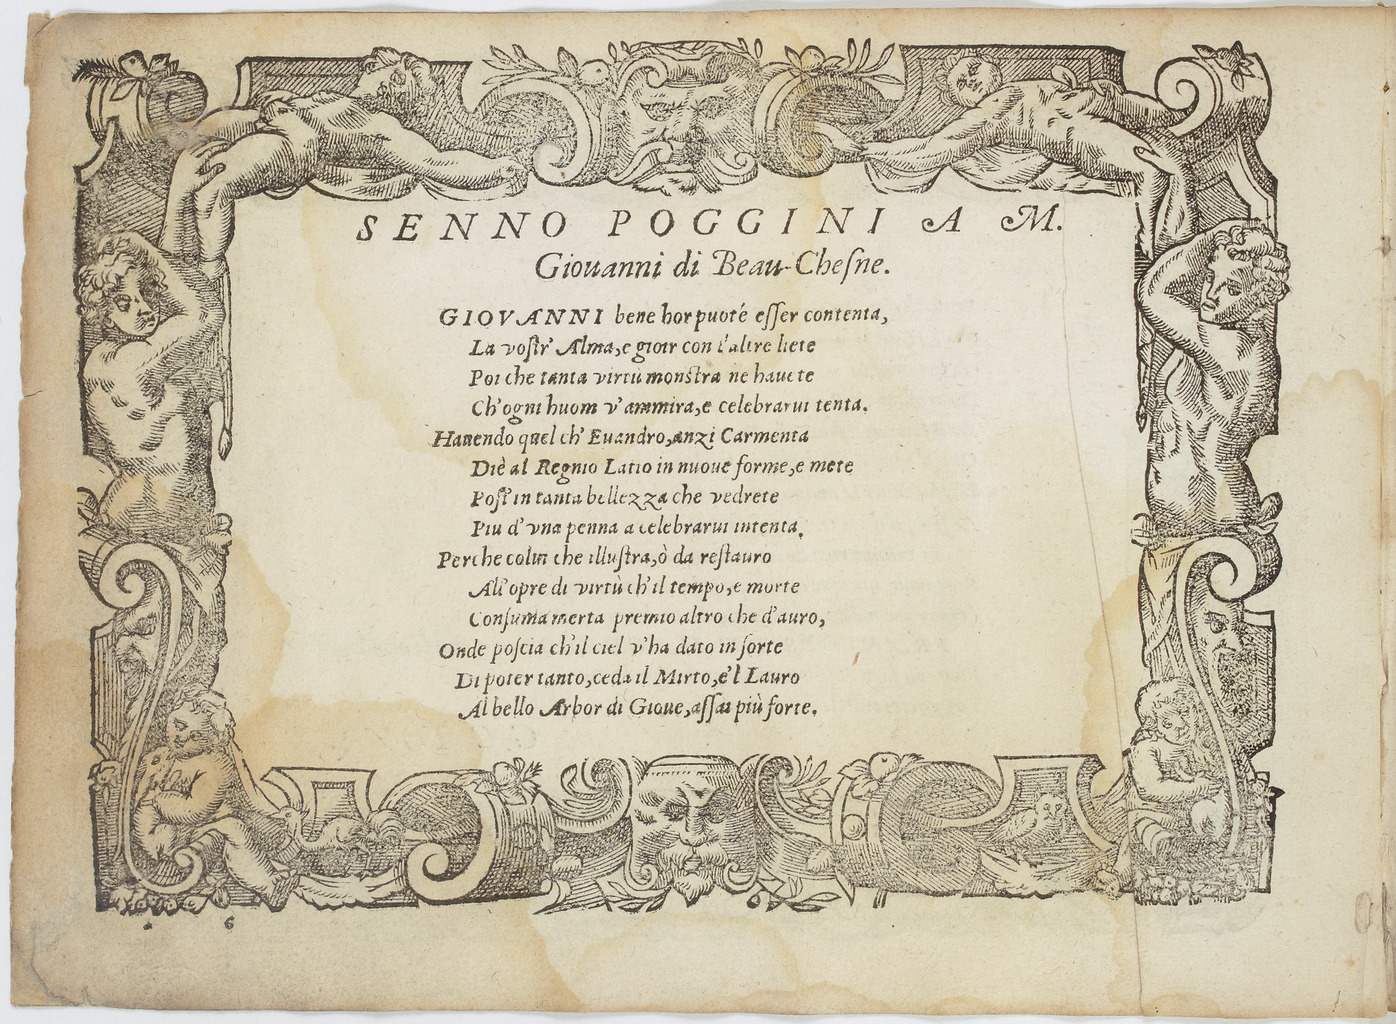 SENNO POGGINI A M.
Giouanni di Beau-Chesne.
GIOVANNI bene hor puot'è esser contenta,
La vostr' Alma, e gioir con l'altre liete
Poi che tanta virtù monstra ne hauete
Ch'ogni huom v'ammira, e celebrarui tenta.
Hauendo quel ch' Euandro, anzi Carmenta
Diè al Regnio Latio in nuoue forme, e mete
Post' in tanta bellezza che vedrete
Piu d' vna penna a celebrarui intenta.
Perche colui che illustra, ò da restauro
All' opre di virtù ch'il tempo, e morte
Consuma merta premio altro che d'auro,
Onde poscia ch'il ciel v'ha dato in sorte
Di poter tanto, ceda il Mirto, e'l Lauro
Al bello Arbor di Gioue, assai più forte.
6